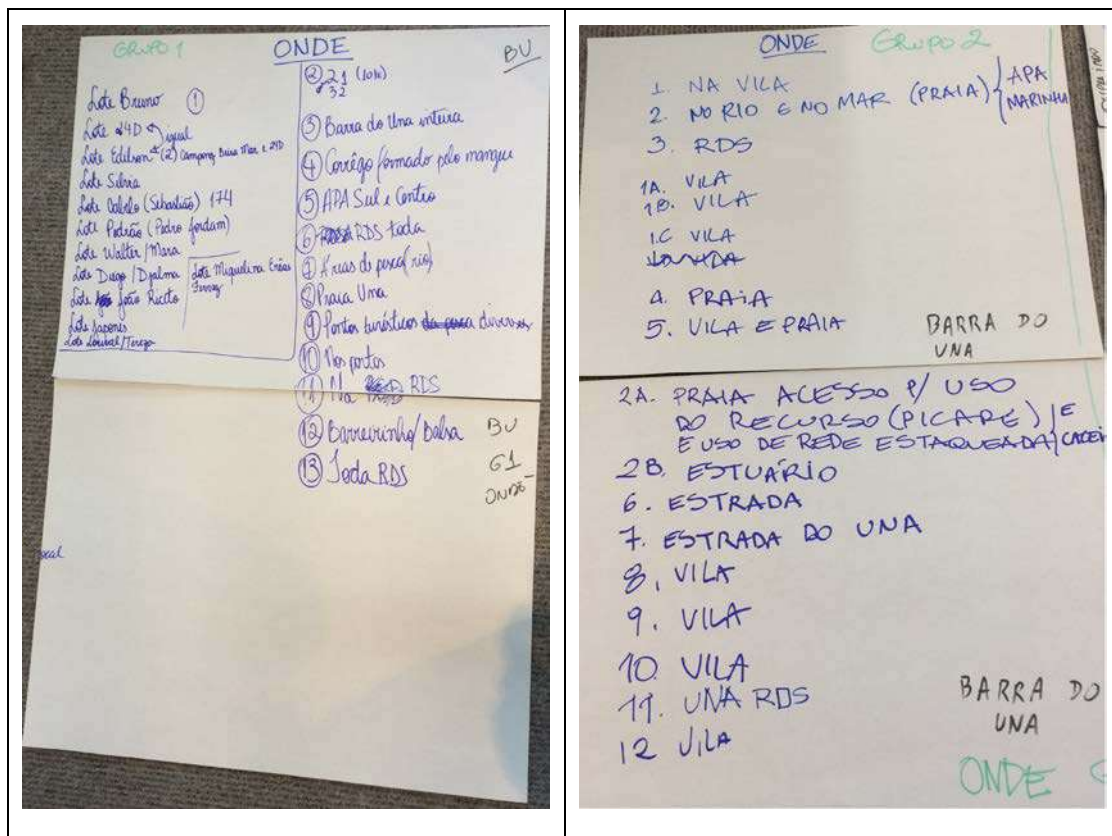 GRUPO 1
ONDE
BU
Lote Bruno ①
Lote 24D igual
Lote Edilson (2) Camping Beira Mar e 24D
Lote Silvia
Lote Cabelo (Sebastião) 174
Lote Pedrão (Pedro Jordam)
Lote Walter/Mara
Lote Diego/Djalma
Lote João Riceto
Lote Miquelina Enéas
Lote Japonês
Lote Lourival/Tereza
② 21 (10N)
32
③ Barra do Una inteira
④ Corrêgo formado pelo mangue
⑤ APA Sul e Centro
⑥ RDS toda
⑦ Áreas de pesca (rio)
⑧ Praia Una
⑨ Pontos turísticos da pesca diversos
⑩ Nos portos
⑪ Na RDS
⑫ Barreirinho/Balsa
⑬ Toda RDS
BU
G1
ONDE
ocal
ONDE
GRUPO 2
1. NA VILA
2. NO RIO E NO MAR (PRAIA) { APA
MARINHA
3. RDS
1A. VILA
1B. VILA
1.C VILA
4. PRAIA
5. VILA E PRAIA
BARRA DO
UNA
2A. PRAIA ACESSO P/ USO
DO RECURSO (PICARE) E
E USO DE REDE ESTAQUEADA
2B. ESTUÁRIO
6. ESTRADA
7. ESTRADA DO UNA
8. VILA
9. VILA
10. VILA
11. UNA RDS
12 VILA
BARRA DO
UNA
ONDE G